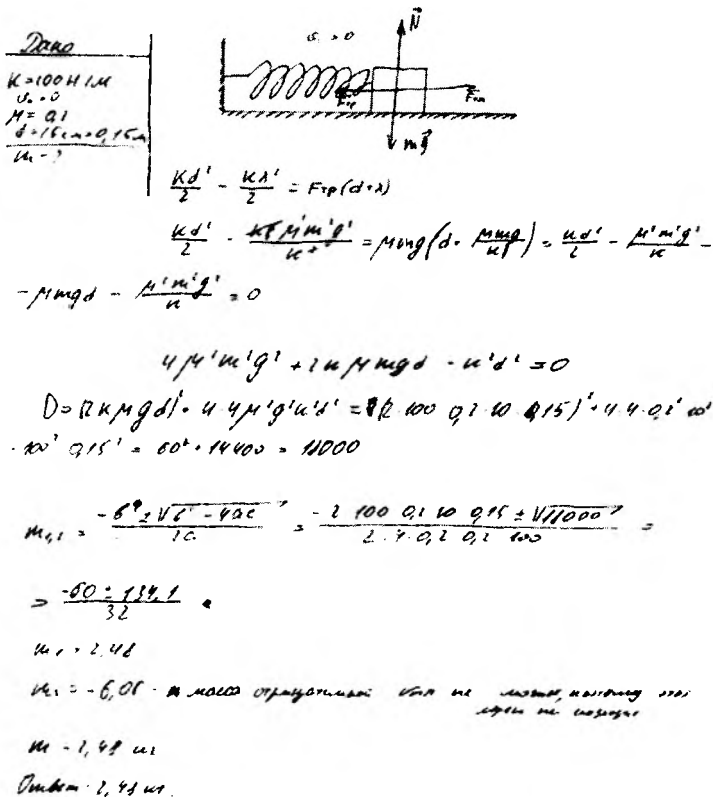 Дано
K = 100 Н/м
v₀ = 0
μ = 0,2
d = 15 см = 0,15 м
m - ?
v₀ = 0
N
Fтр
mg
Kd²/2 - Kx²/2 = Fтр(d+x)
Kd²/2 - μ²m²g² = μmg(d + μmg) = Kd²/2 - μ²m²g²/K -
- μmgd - μ²m²g²/K = 0
4μ²m²g² + 2Kμmgd - K²d² = 0
D = (2Kμgd)² + 4·4μ²g²K²d² = (2·100·0,2·10·0,15)² + 4·4·0,2²·10²
·100²·0,15² = 60² + 14400 = 18000
m₁,₂ = (-b ± √(b² - 4ac))/2a = (-2·100·0,2·10·0,15 ± √18000)/(2·4·0,2·0,2·100) =
= (-60 ± 134,1)/32
m₁ = 2,48
m₂ = -6,06 - масса отрицательной не может, поэтому этот
не
m - 2,48 кг
Ответ: 2,48 кг.